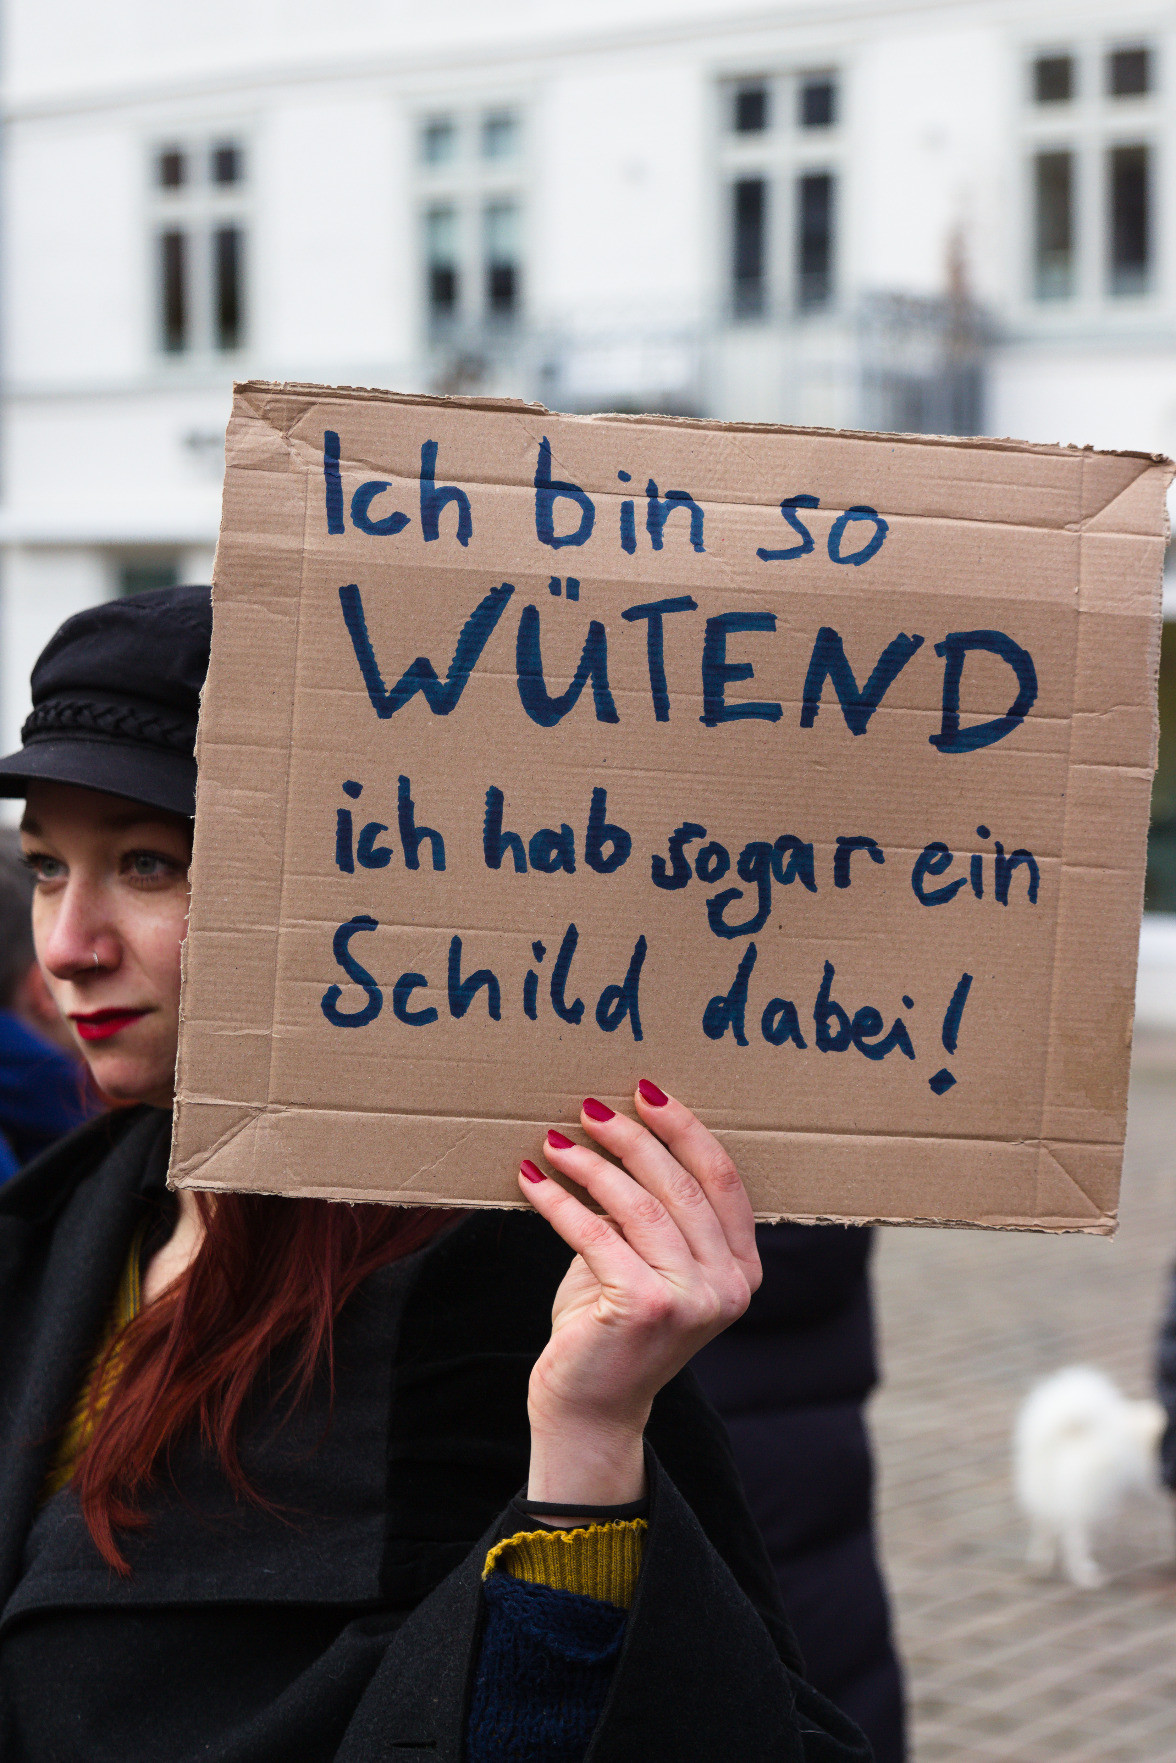 Ich bin so
WÜTEND
ich hab sogar ein
Schild dabei!